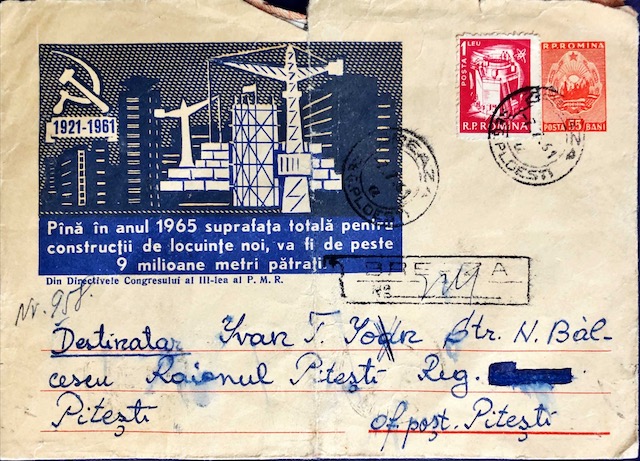 1921-1961
Pînă în anul 1965 suprafața totală pentru
construcții de locuințe noi, va fi de peste
9 milioane metri pătrați.
Din Directivele Congresului al III-lea al P. M. R.
1 LEU
POSTA
R.P.ROMINA
R.P.ROMINA
POSTA 55 BANI
BREAZA
PLOEȘTI
BREAZA
PLOEȘTI
BREAZA
No
Nr. 958.
Destinatar Ivan T. Ioan Str. N. Băl-
cescu Raionul Pitești Reg.
Pitești of. poșt. Pitești